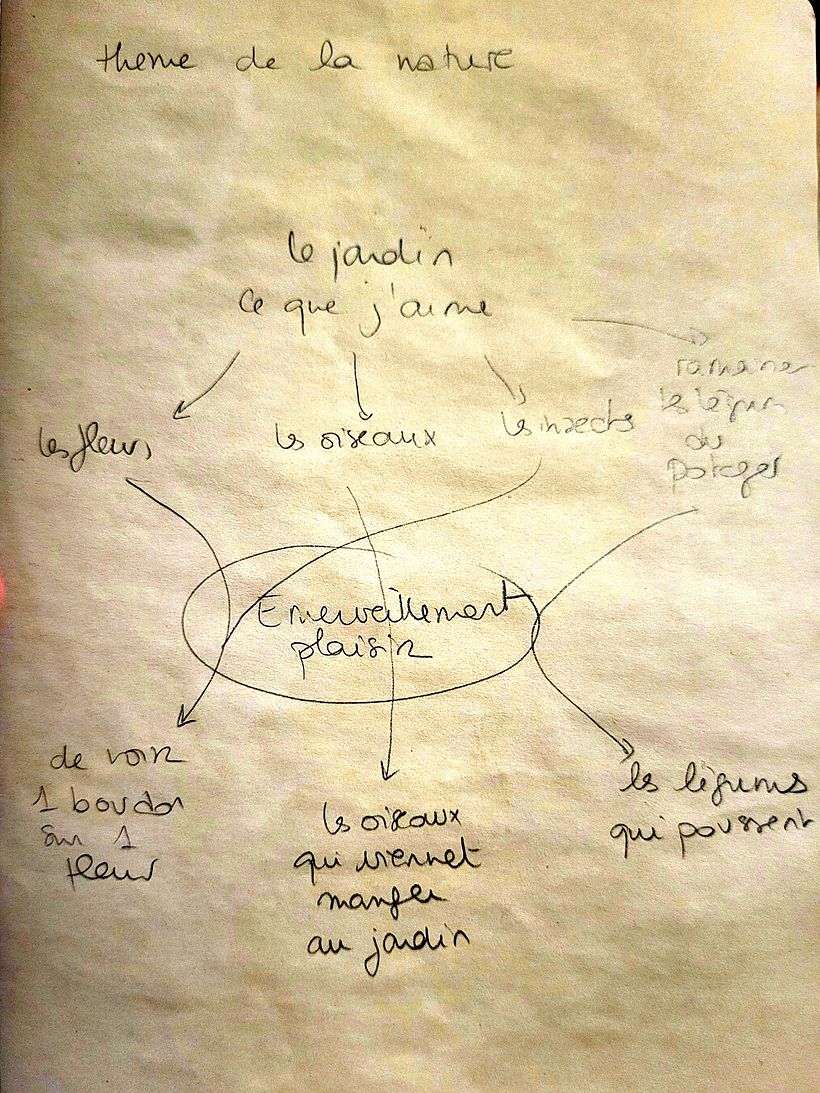 theme de la nature
le jardin
ce que j'aime
les fleurs
les oiseaux
les insectes
ramener
les légumes
du
potager
Emerveillement
plaisir
de voir
1 bourdon
sur 1
fleur
les oiseaux
qui viennet
manger
au jardin
les légumes
qui poussent